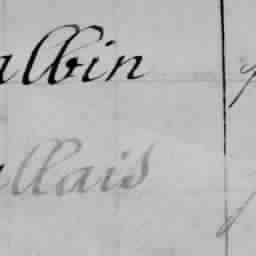 albin
llais